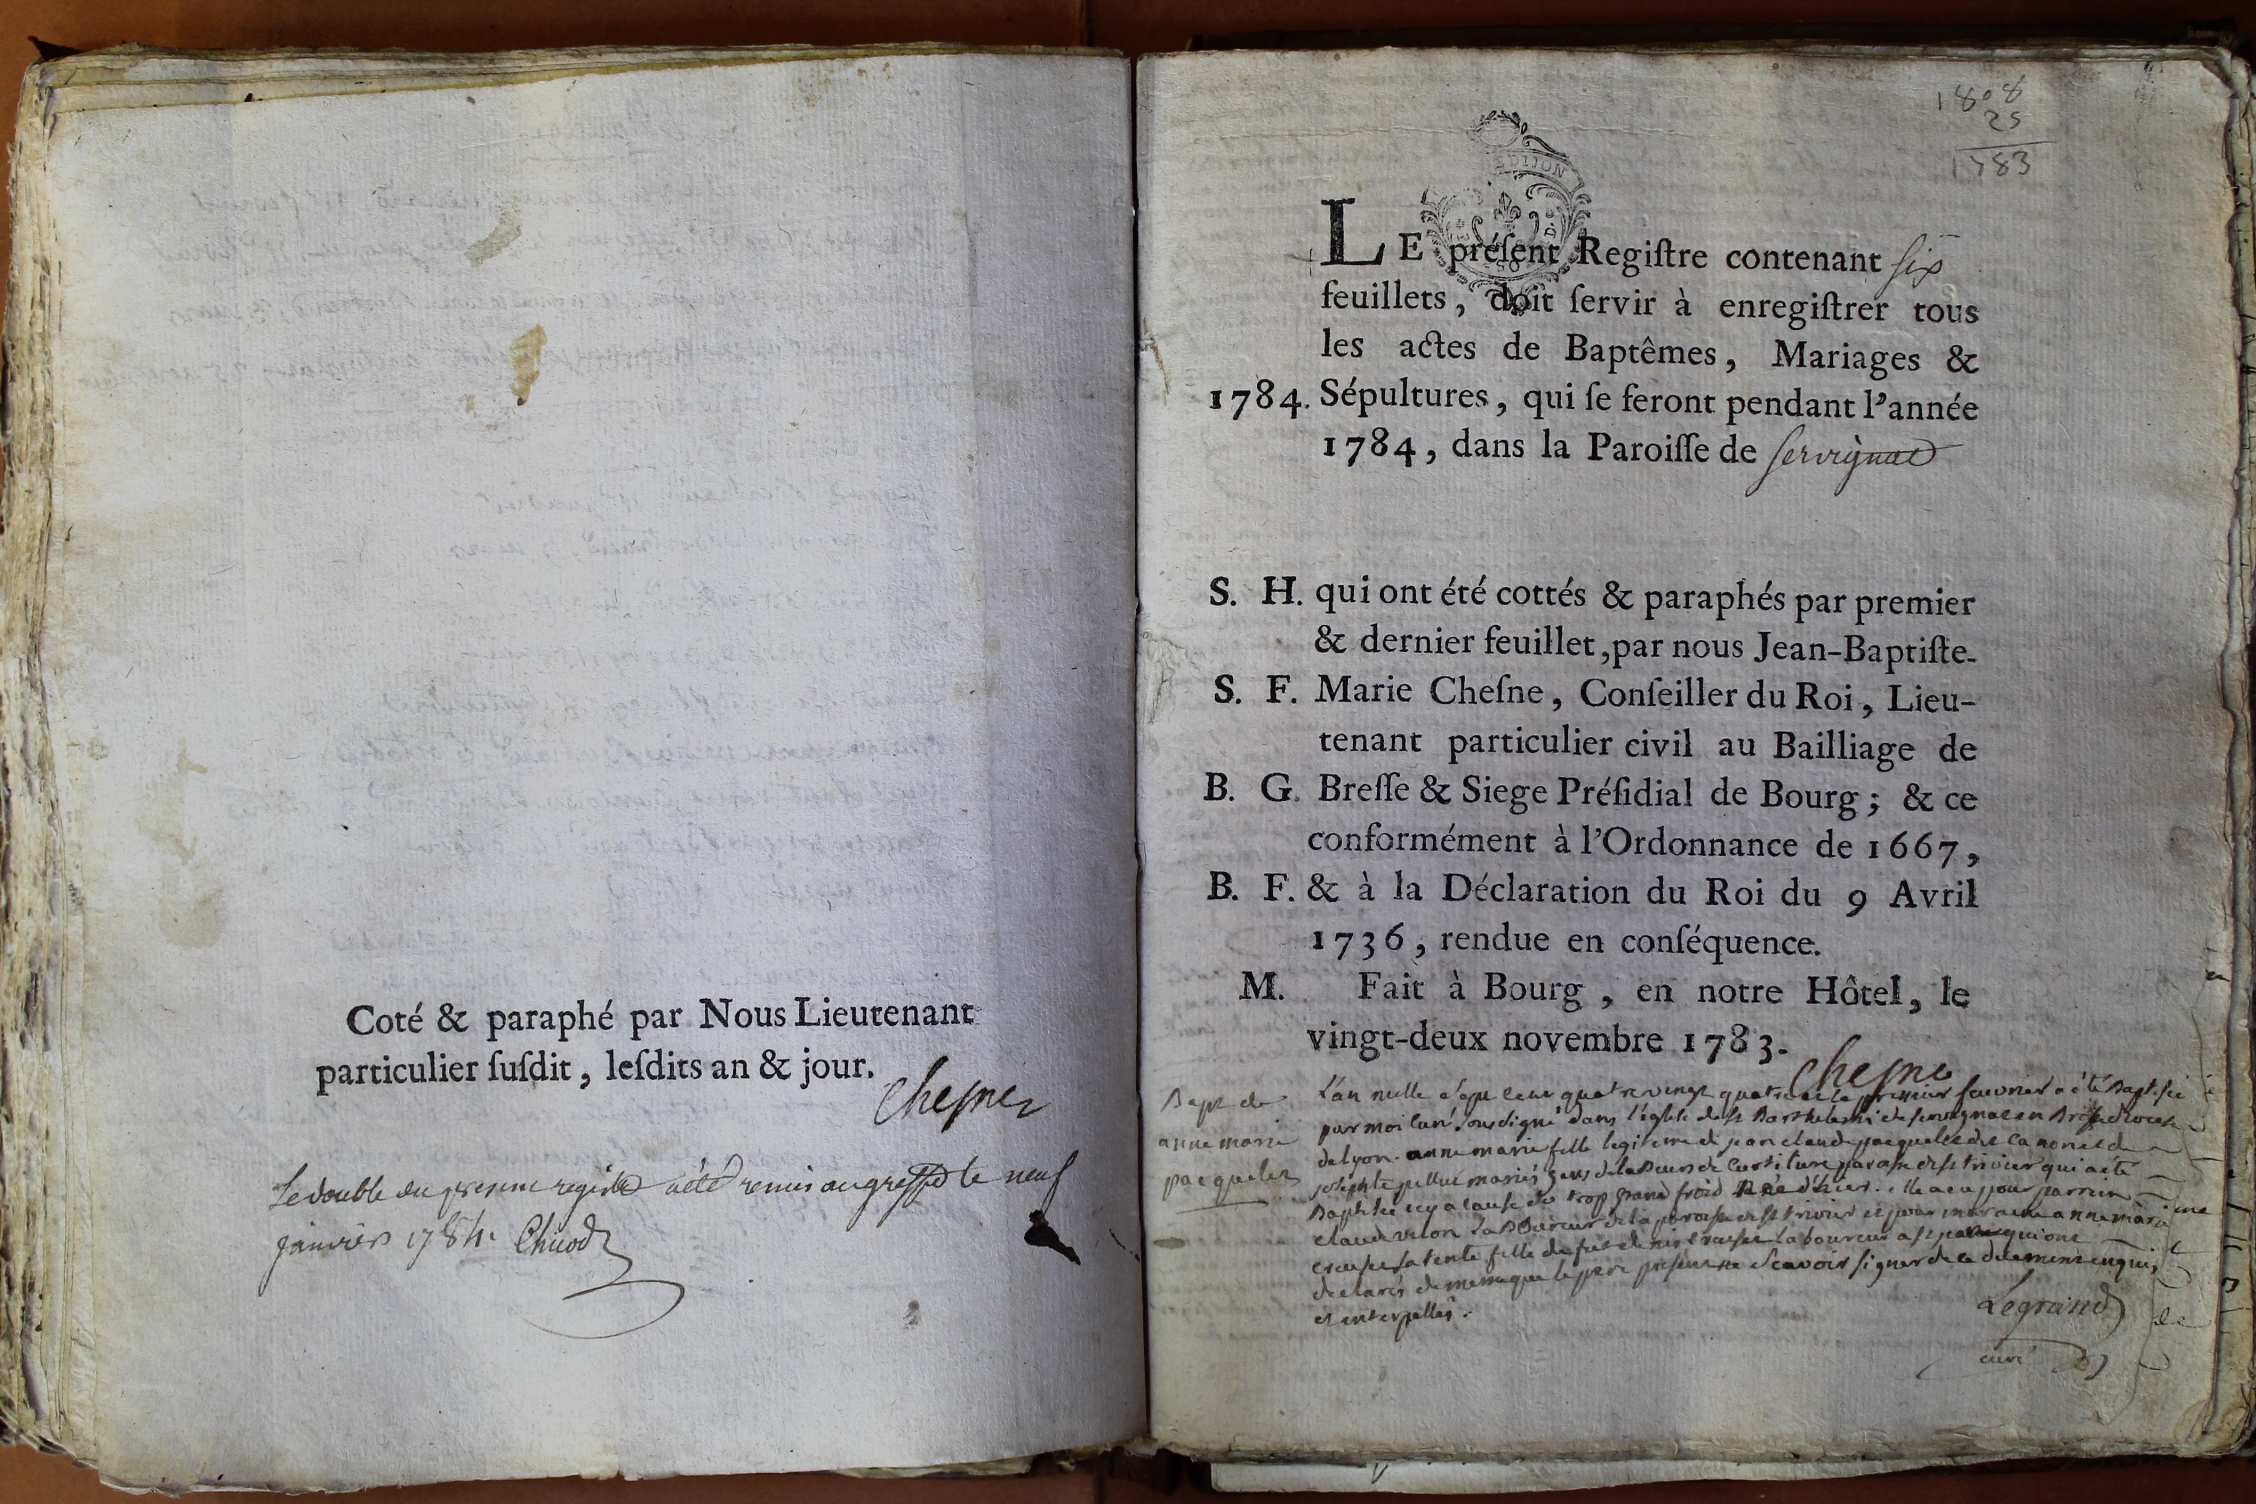 Coté & paraphé par Nous Lieutenant
particulier ſuſdit, leſdits an & jour.
Cheſne
Le double du present registre a été remis au greffe le neuf
janvier 1784. Chicod
1808
25
1783
DIJON
LE préſent Regiſtre contenant six
feuillets, doit ſervir à enregiſtrer tous
les actes de Baptêmes, Mariages &
1784. Sépultures, qui ſe feront pendant l'année
1784, dans la Paroiſſe de Servignat
S. H. qui ont été cottés & paraphés par premier
& dernier feuillet, par nous Jean-Baptiſte-
S. F. Marie Cheſne, Conſeiller du Roi, Lieu-
tenant particulier civil au Bailliage de
B. G. Breſſe & Siege Préſidial de Bourg; & ce
conformément à l'Ordonnance de 1667,
B. F. & à la Déclaration du Roi du 9 Avril
1736, rendue en conſéquence.
M. Fait à Bourg, en notre Hôtel, le
vingt-deux novembre 1783.
Cheſne
Bapt de
anne marie
pacquelet
L'an mille sept cent quatrevingt quatre et le premier fevrier a été Baptisée
par moi curé soussigné dans l'église de st Barthelemi de servignat en Bresse diocese
de lyon. anne marie fille legitime de jean claude pacquelet dit canonet de
josephte pellue mariés gens de labeur de Curtiture paroisse de st trivier qui a été
Baptisée icy a cause du trop grand froid née d'hier. elle a eu pour parrein
claude velon Laboureur de la paroisse de st trivier et pour maraine anne marie
sa tente fille de fut denis laboureur a qui ont
declarés de meme que le pere present ne scavoir signer de ce duement enquis
et interpellés.
Legrand
curé